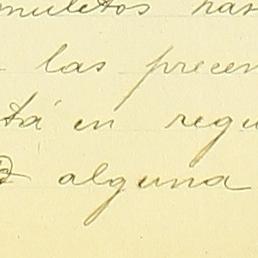 muletos has
las precen
tá en regu
alguna